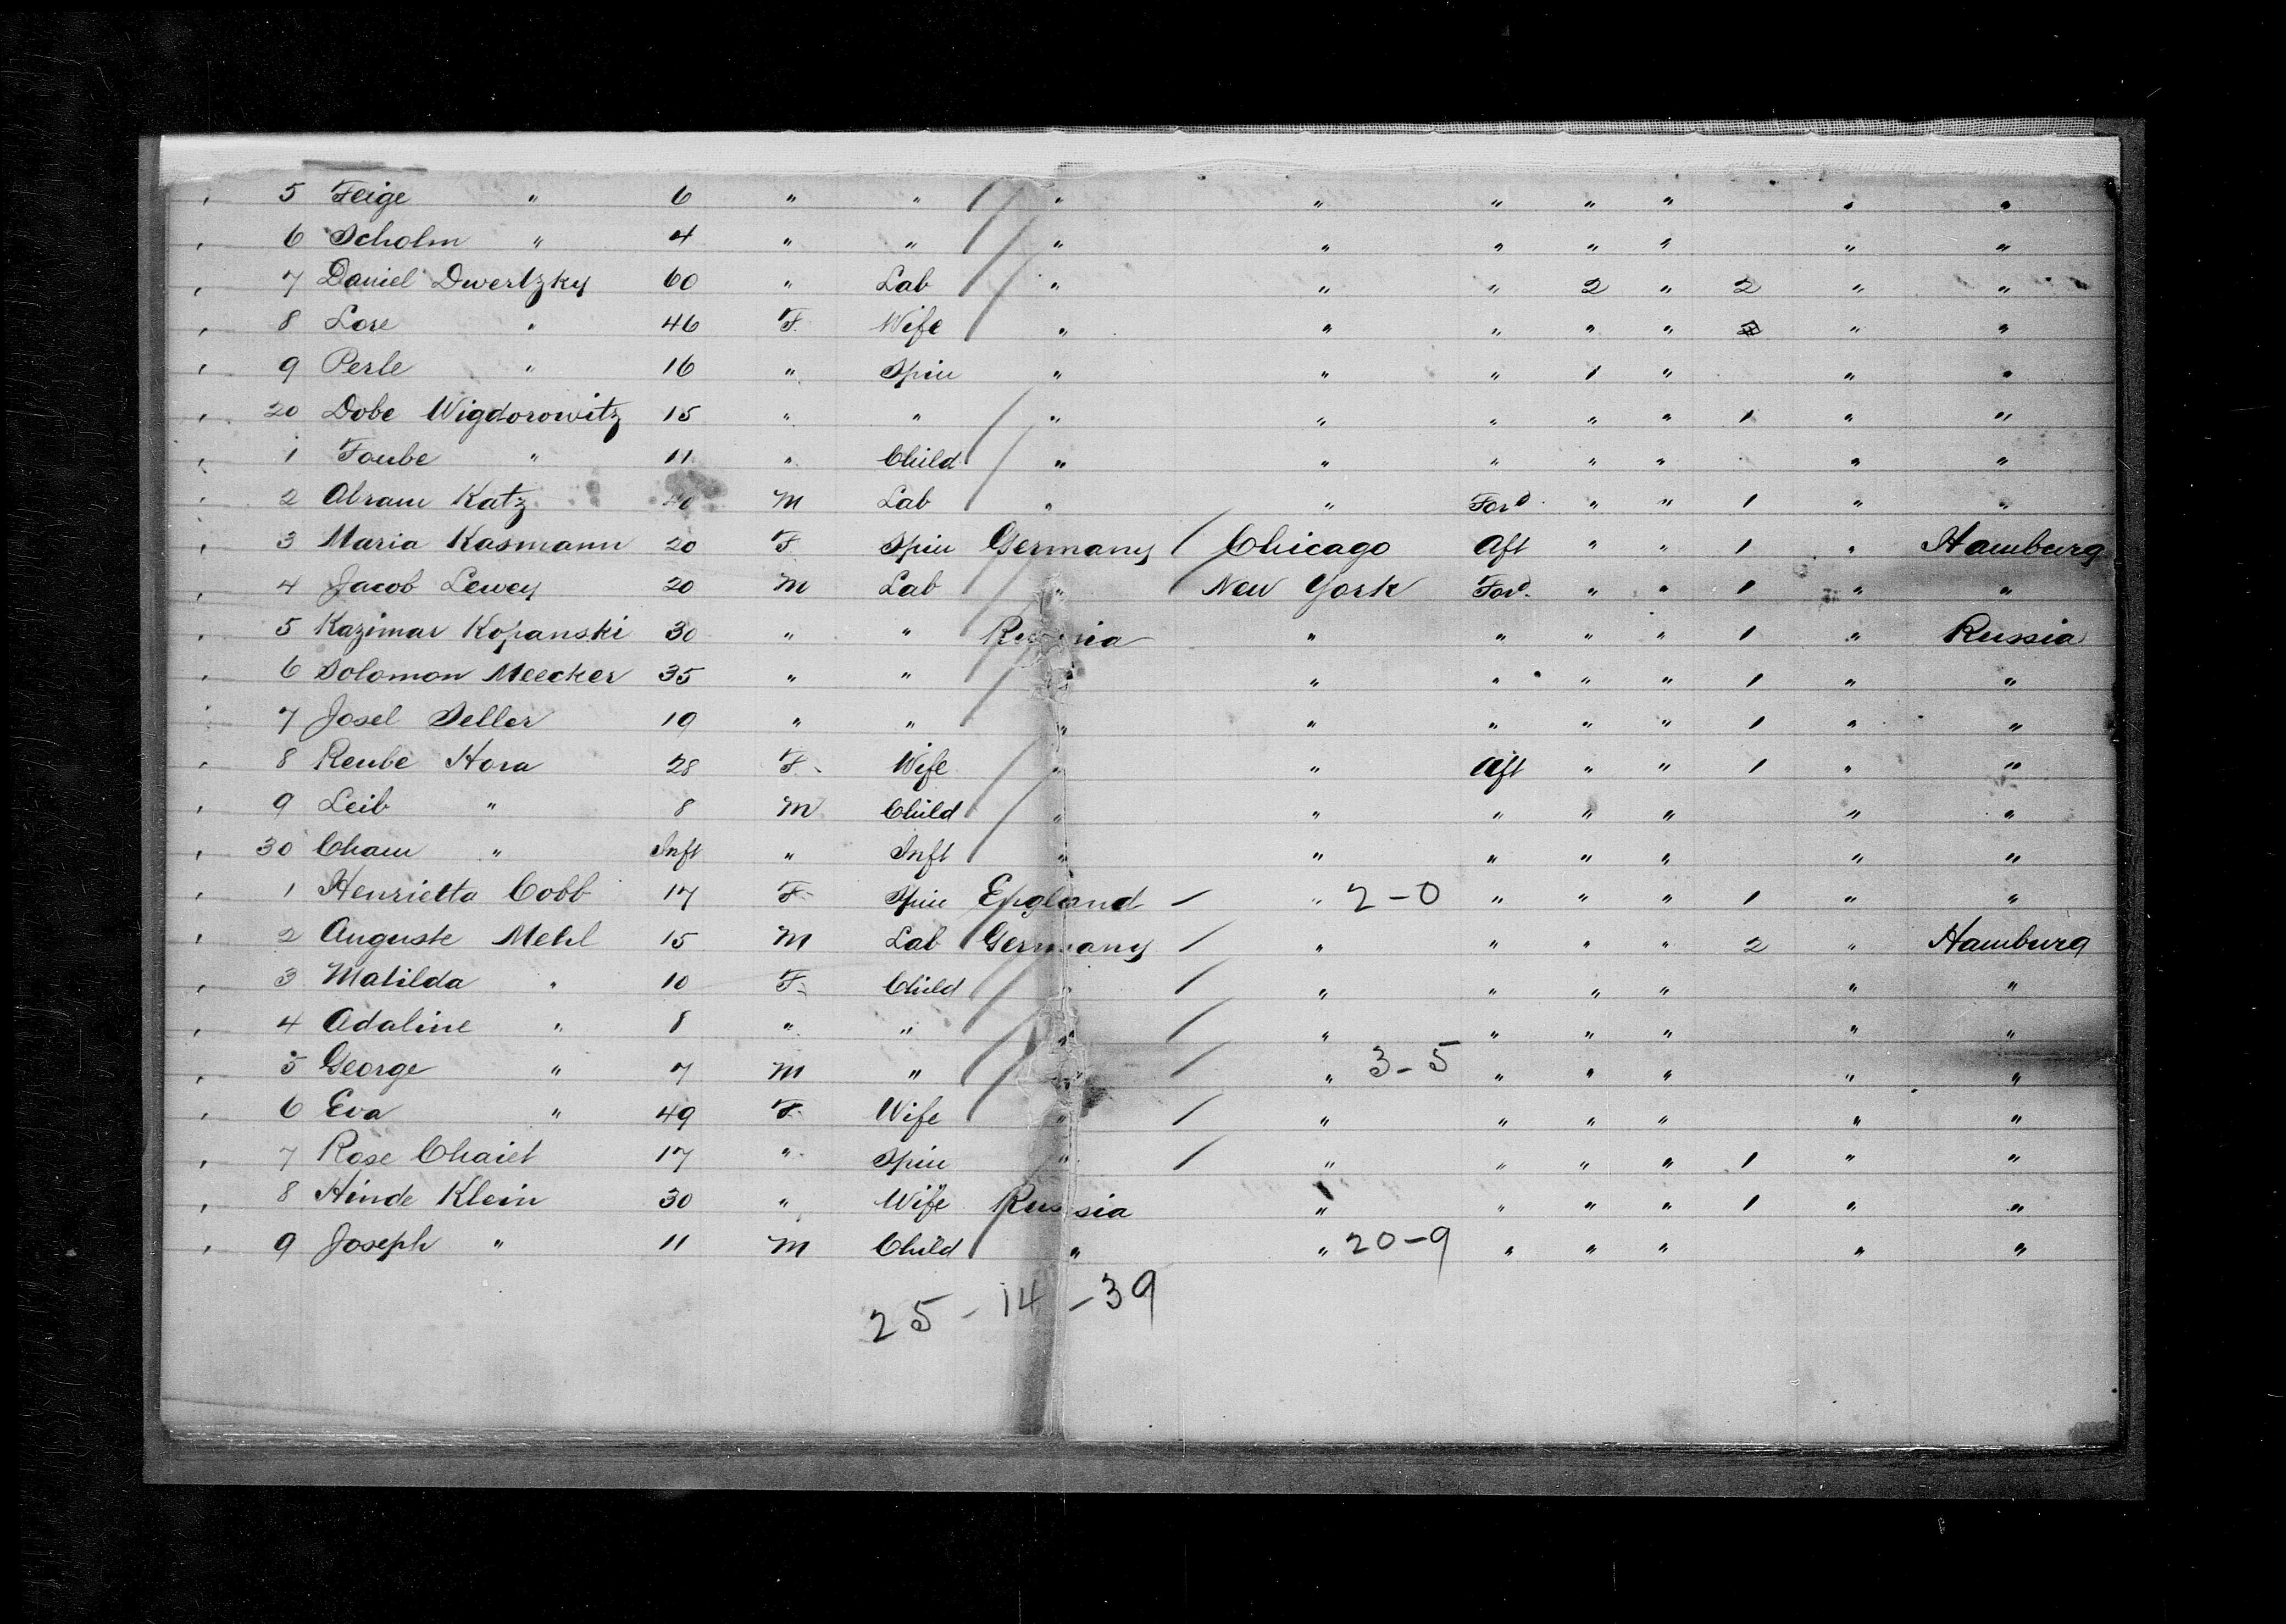 " 5 Feige " 6 " " " " " " " " "
" 6 Scholm " 4 " " " " " " " " "
" 7 Daniel Dwertzky 60 " Lab " " " 2 " 2 " "
" 8 Lore " 46 F. Wife " " " " " " "
" 9 Perle " 16 " Spin " " " 1 " " "
" 20 Dobe Wigdorowitz 15 " " " " " " " 1 " "
" 1 Toube " 11 " Child " " " " " " "
" 2 Abram Katz M Lab " " For'd " " 1 " "
" 3 Maria Kasmann 20 F Spin Germany Chicago Aft " " 1 " Hamburg
" 4 Jacob Lewey 20 M Lab " New York For'd " " 1 " "
" 5 Kazimar Kopanski 30 " " Russia " " " " 1 " Russia
" 6 Solomon Meecker 35 " " " " " " " 1 " "
" 7 Josel Seller 19 " " " " " " " 1 " "
" 8 Reube Hora 28 F. Wife " " Aft " " 1 " "
" 9 Leib " 8 M Child " " " " " " "
" 30 Cham " Inft " Inft " " " " " " "
" 1 Henrietta Cobb 17 F Spin England " 2-0 " " " 1 " "
" 2 Auguste Mehl 15 M Lab Germany " " " " 2 " Hamburg
" 3 Matilda " 10 F. Child " " " " " " "
" 4 Adaline " 8 " " " " " " " " "
" 5 George " 7 M " " " 3-5 " " " " "
" 6 Eva " 49 F. Wife " " " " " " "
" 7 Rose Chaiet 17 " Spin " " " " " 1 " "
" 8 Hinde Klein 30 " Wife Russia " " " " 1 " "
" 9 Joseph " 11 M Child " " 20-9 " " " " "
25-14-39